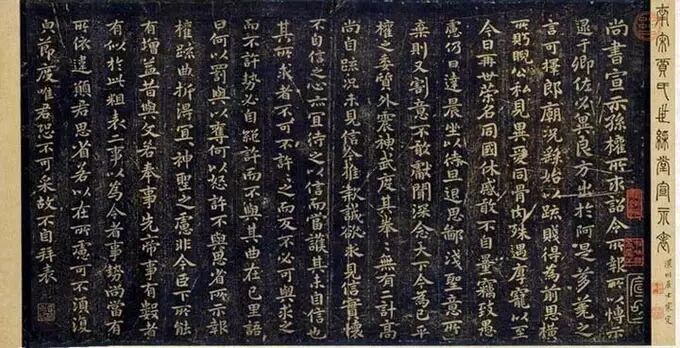 南宋賈氏世綵堂宣示表
尚書宣示孫權所求詔令所報所以博示
逮于卿佐必冀良方出於阿是芻蕘之
言可擇郎廟況繇始以疏賤得為前思橫
所眄睨公私見異愛同骨肉殊遇厚寵以至
今日再世榮名同國休慼敢不自量竊致愚
慮仍日達晨坐以待旦退思鄙淺聖意所
棄則又割意不敢獻聞深念天下今為已平
權之委質外震神武度其拳〻無有二計高
尚自疏況未見信今推款誠欲求見信實懷
不自信之心亦宜待之以信而當護其未自信也
其所求者不可不許〻之而反不必可與求之
而不許勢必自絕許而不與其曲在己里語
曰何以罰與以奪何以怒許不與思省所示報
權疏曲折得宜神聖之慮非今臣下所能
有增益昔與文若奉事先帝事有數者
有似於此粗表二事以為今者事勢尚當有
所依違願君思省若以在所慮可不須復
與節度唯君恐不可采故不自拜表